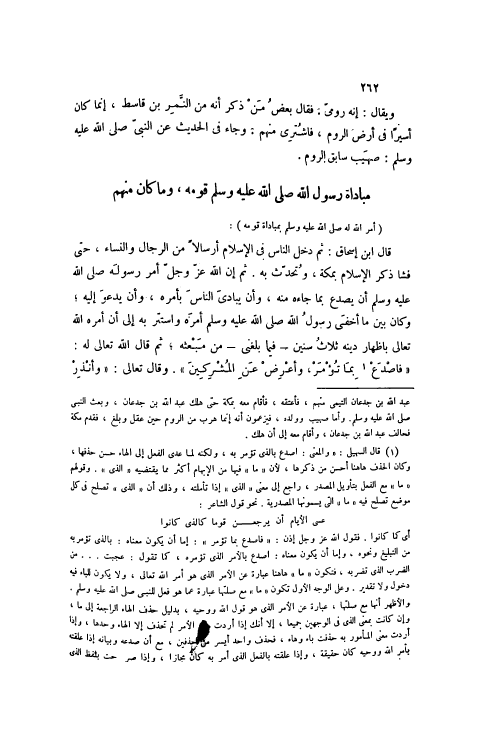 ٢٦٢
ويقال : إنه رومىّ . فقال بعضُ مَنْ ذكر أنه من النَّمِر بن قاسط ، إنما كان
أسيرًا فى أرض الروم ، فاشتُرِى منهم : وجاء فى الحديث عن النبىّ صلى الله عليه
وسلم : صهيَب سابق الروم .
مباداة رسول الله صلى الله عليه وسلم قومه ، وما كان منهم
( أمر الله له صلى الله عليه وسلم بمباداة قومه ) :
قال ابن إسحاق : ثم دخل الناس فى الإسلام أرسالاً من الرجال والنساء ، حتّى
فشا ذكر الإسلام بمكة ، وتُحدّث به . ثم إن الله عزّ وجلّ أمر رسوله صلى الله
عليه وسلم أن يصدع بما جاءه منه ، وأن يبادىَ الناسَ بأمره ، وأن يدعوَ إليه ؛
وكان بين ما أخفى رسولُ الله صلى الله عليه وسلم أمرَه واستتر به إلى أن أمره الله
تعالى بإظهار دينه ثلاثُ سنين – فيما بلغنى – من مَبْعثه ؛ ثم قال الله تعالى له :
« فاصْدَعْ ١ بِمَا تُؤْمَرُ ، وأعْرِضْ عَنِ المُشْرِكِينَ » . وقال تعالى : « وأنْذِرْ
عبد الله بن جدعان التيمى منهم ، فأعتقه ، فأقام معه بمكة حتى هلك عبد الله بن جدعان ، وبعث النبى
صلى الله عليه وسلم. وأما صهيب وولده ، فيزعمون أنه إنما هرب من الروم حين عقل وبلغ ، فقدم مكة
فحالف عبد الله بن جدعان ، وأقام معه إلى أن هلك .
(١) قال السهيلى : « والمعنى : اصدع بالذى تؤمر به ، ولكنه لما عدى الفعل إلى الهاء حسن حذفها ،
وكان الحذف هاهنا أحسن من ذكرها ، لأن « ما » فيها من الإبهام أكثر مما يقتضيه « الذى » . وقولهم
« ما » مع الفعل بتأويل المصدر ، راجع إلى معنى « الذى » إذا تأملته ، وذلك أن « الذى » تصلح فى كل
موضع تصلح فيه « ما » التى يسمونها المصدرية . نحو قول الشاعر :
عسى الأيام أن يرجعـــن قوما كالذى كانوا
أى كما كانوا . فقول الله عز وجل إذن : « فاصدع بما تؤمر » : إما أن يكون معناه : بالذى تؤمر به
من التبليغ ونحوه ، وإما أن يكون معناه : اصدع بالأمر الذى تؤمره ، كما تقول : عجبت . . . من
الضرب الذى تضربه ، فتكون « ما » هاهنا عبارة عن الأمر الذى هو أمر الله تعالى ، ولا يكون للباء فيه
دخول ولا تقدير . وعلى الوجه الأول تكون « ما » مع صلتها عبارة عما هو فعل للنبى صلى الله عليه وسلم .
والأظهر أنها مع صلتها ، عبارة عن الأمر الذى هو قول الله ووحيه ، بدليل حذف الهاء الراجعة إلى ما ،
وإن كانت بمعنى الذى فى الوجهين جميعا ، إلا أنك إذا أردت الأمر لم تحذف إلا الهاء وحدها ، وإذا
أردت معنى المأمور به حذفت باء وهاء ، فحذف واحد أيسر من حذفين ، مع أن صدعه وبيانه إذا علقته
بأمر الله ووحيه كان حقيقة ، وإذا علقته بالفعل الذى أمر به كان مجازا ، وإذا صرحت بلفظ الذى